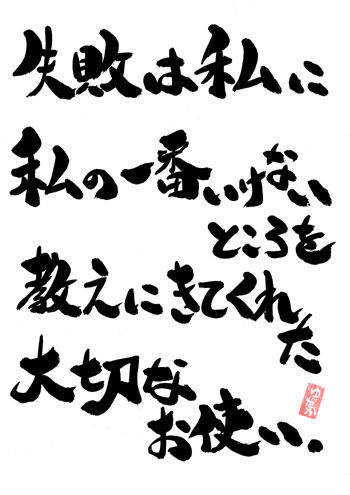 失敗は私に
私の一番いけない
ところを
教えにきてくれた
大切な
お使い.
ゆたか